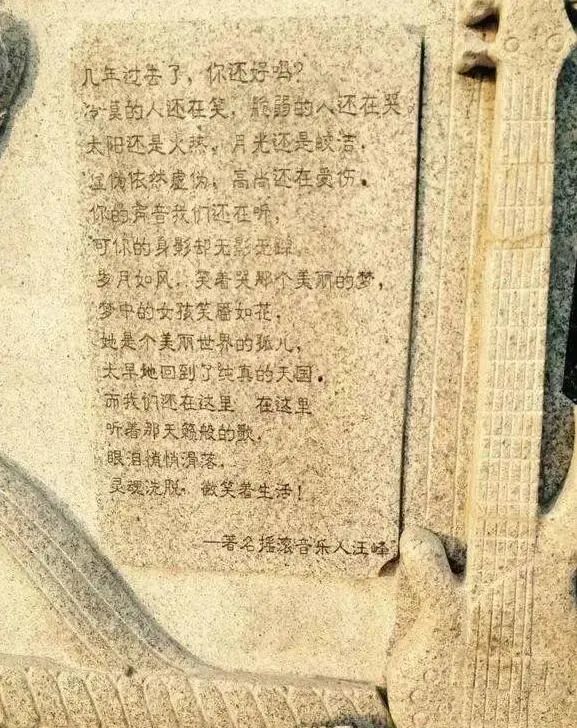 几年过去了，你还好吗？
冷漠的人还在笑，脆弱的人还在哭。
太阳还是火热，月光还是皎洁，
虚伪依然虚伪，高尚还在负伤。
你的声音我们还在听，
可你的身影却无影无踪。
岁月如风，笑着哭那个美丽的梦，
梦中的女孩笑靥如花，
她是个美丽世界的孤儿，
太早地回到了纯真的天国。
而我们还在这里　在这里
听着那天籁般的歌，
眼泪悄悄滑落，
灵魂洗脱，微笑着生活！
—著名摇滚音乐人汪峰